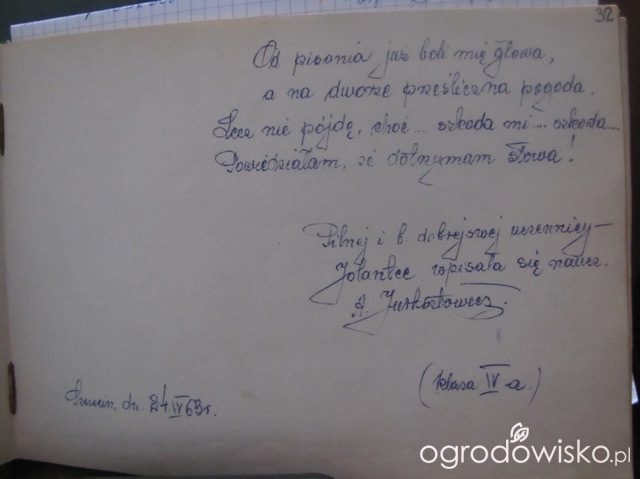 32
Od pisania już boli mię głowa,
a na dworze prześliczna pogoda.
Lecz nie pójdę, choć ... szkoda mi ... szkoda...
Powiedziałam, że dotrzymam słowa!
Pilnej i b. dobrej swej uczennicy -
Jolantce wpisała się naucz.
A.
(klasa IV a.)
dn. 24 IV 63 r.
ogrodowisko.pl